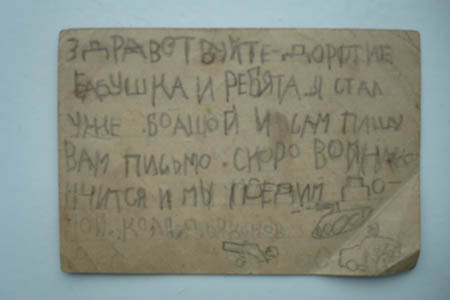 ЗДРАВСТВУЙТЕ-ДОРОГИЕ
БАБУШКА И РЕБЯТА.Я СТАЛ
УЖЕ БОЛШОЙ И САМ ПИШУ
ВАМ ПИСЬМО.СКОРО ВОЙНА КО
НЧИТСЯ И МЫ ПОЕДИМ ДО-
МОЙ. КОЛЯ